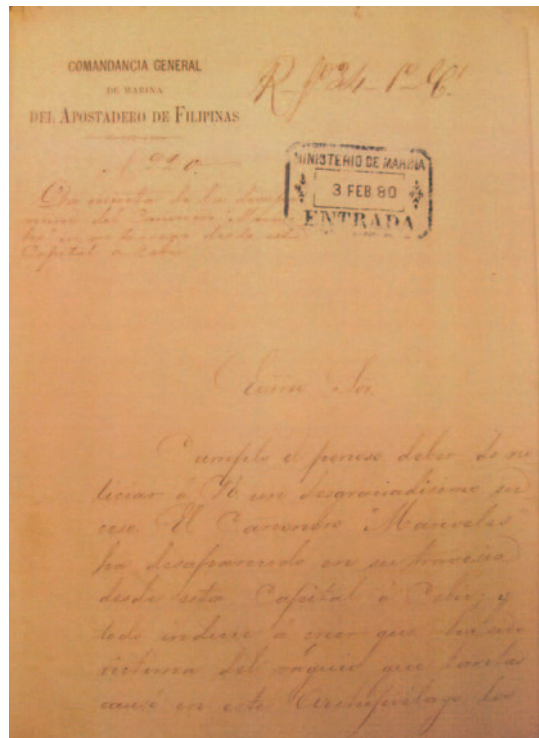 COMANDANCIA GENERAL
DE MARINA
DEL APOSTADERO DE FILIPINAS
MINISTERIO DE MARINA
3 FEB 80
ENTRADA
Da cuenta de la desapa
del Cañonero
desde esta
Capital a Cebú
Excmo Sor.
Cumplo el penoso deber de no
ticiar á VE un desgraciadisimo su
ceso. El Cañonero "Mariveles"
ha desaparecido en su travesia
desde esta Capital á Cebú; y
todo induce á creer que ha sido
victima del váguio que tantas
causó en este Archipielago los